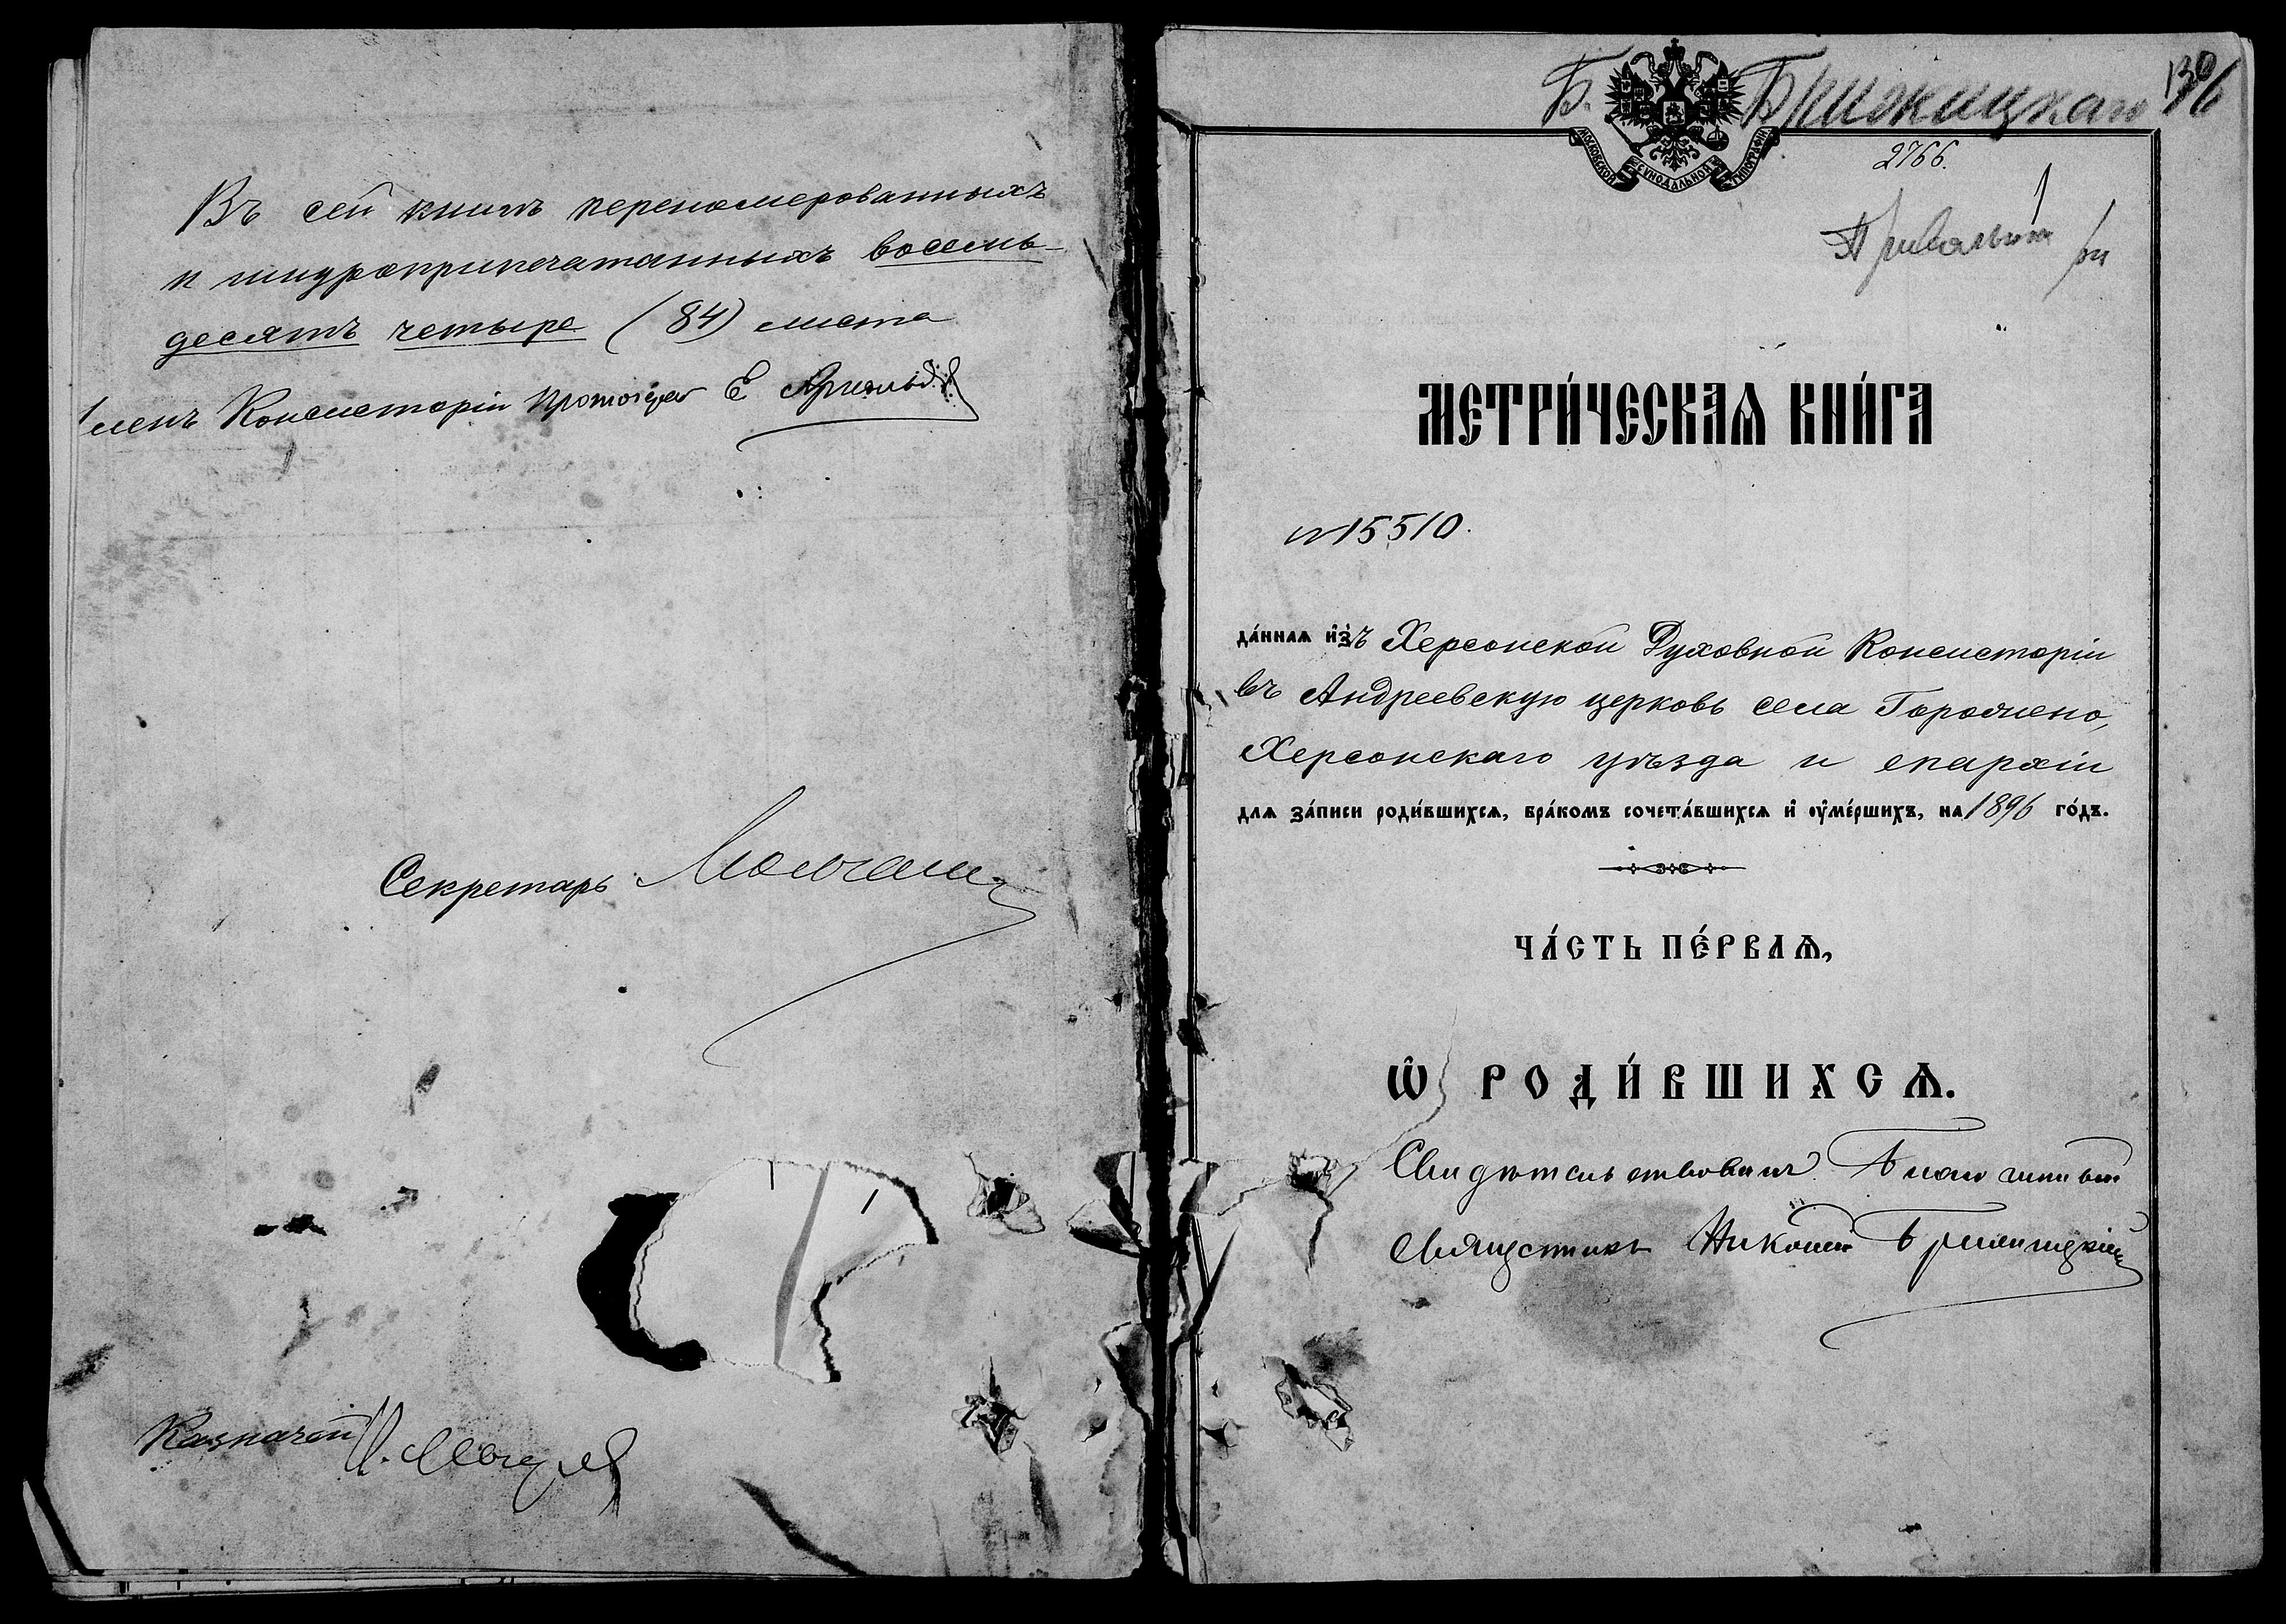 Въ сей книгѣ перенумерованныхъ
и шнуроприпечатанныхъ восемь-
десятъ четыре (84) листа
Членъ Консисторіи Протоіерей Е
Секретарь
Казначей
Б. Брижицкаго
2766.
1
МОСКОВСКОЙ СѴНОДАЛЬНОЙ ТИПОГРАФІИ
МЕТРИ́ЧЕСКАѦ КНИ́ГА
№ 15510.
да́ннаѧ и҆зъ Херсонской Духовной Консисторіи
въ Андреевскую церковь села
Херсонскаго уѣзда и епархіи
длѧ за́писи роди́вшихсѧ, бра́комъ сочета́вшихсѧ и҆ оу҆ме́ршихъ, на 1896 го́дъ.
ЧА́СТЬ ПЕ́РВАѦ,
Ѡ҆ РОДИ́ВШИХСѦ.
Свидѣтельствовалъ Благочинный
Священникъ Николай Брижицкій